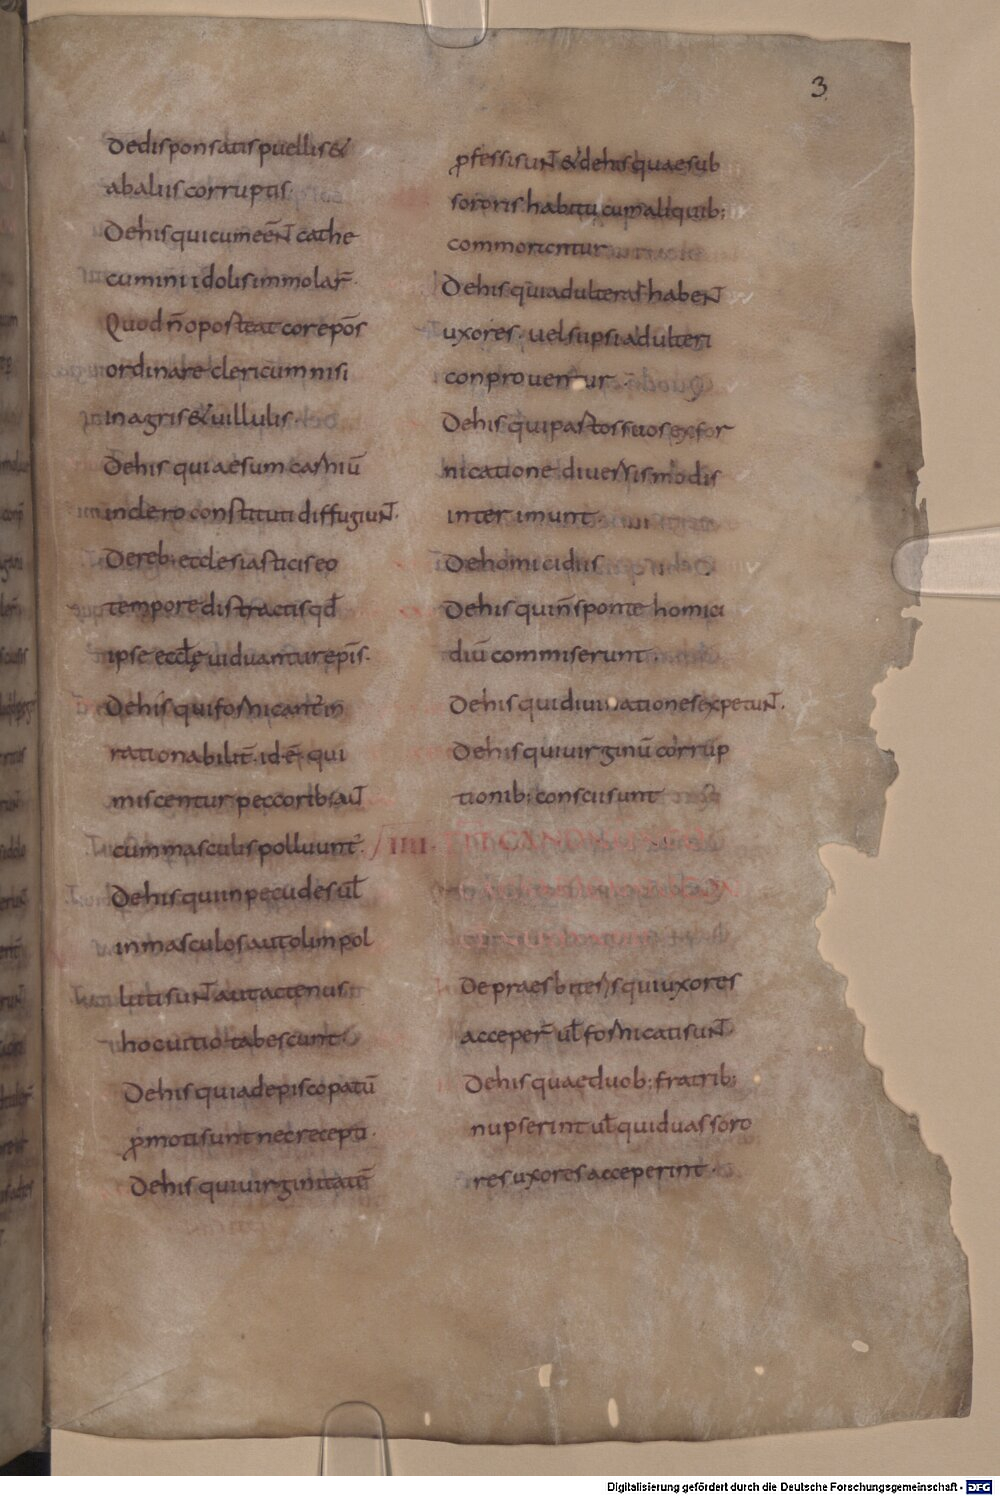 3
De disponsatis puellis &
ab aliis corruptis.
De his qui cum eēNT cathe
cumini idolis immolar̄.
Quod n̄ oposteat corepōs
ordinare clericum nisi
in agris & uillulis.
De his qui a esum carniū
in clero constituti diffugiuNT.
De reb; ecclesiasticis eo
tempore distractis qd̄
ipse eccłę uiduantur epīs.
De his qui fornicant in
rationabilit̄. id ē. qui
miscentur peccorib; auT
cum masculis polluunt̄.
De his qui in pecudes uł
in masculos aut olim pol
luti suNT aut actenus
hoc uitio tabescunt
De his qui ad episcopatū
ꝓmoti sunt nec recepti.
De his qui uirginitatē
ꝓfessi suNT & de his quae sub
sororis habitu cum aliquib;
commorentur
De his qui adulteras habeNT
uxores. uel si ipsi adulteri
conprouentur
De his qui pastos suos ex for
nicatione diuersis modis
interimunt.
De homicidiis
De his qui n̄ sponte homici
diū commiserunt.
De his qui diuinationes expetuNT.
De his qui uirginū corrup
tionib; conscii sunt
IIII.
De praesbiteris qui uxores
acceper̄ uł fornicati suNT
De his quae duob; fratrib;
nupserint uł qui duas soro
res uxores acceperint.
Digitalisierung gefördert durch die Deutsche Forschungsgemeinschaft - DFG